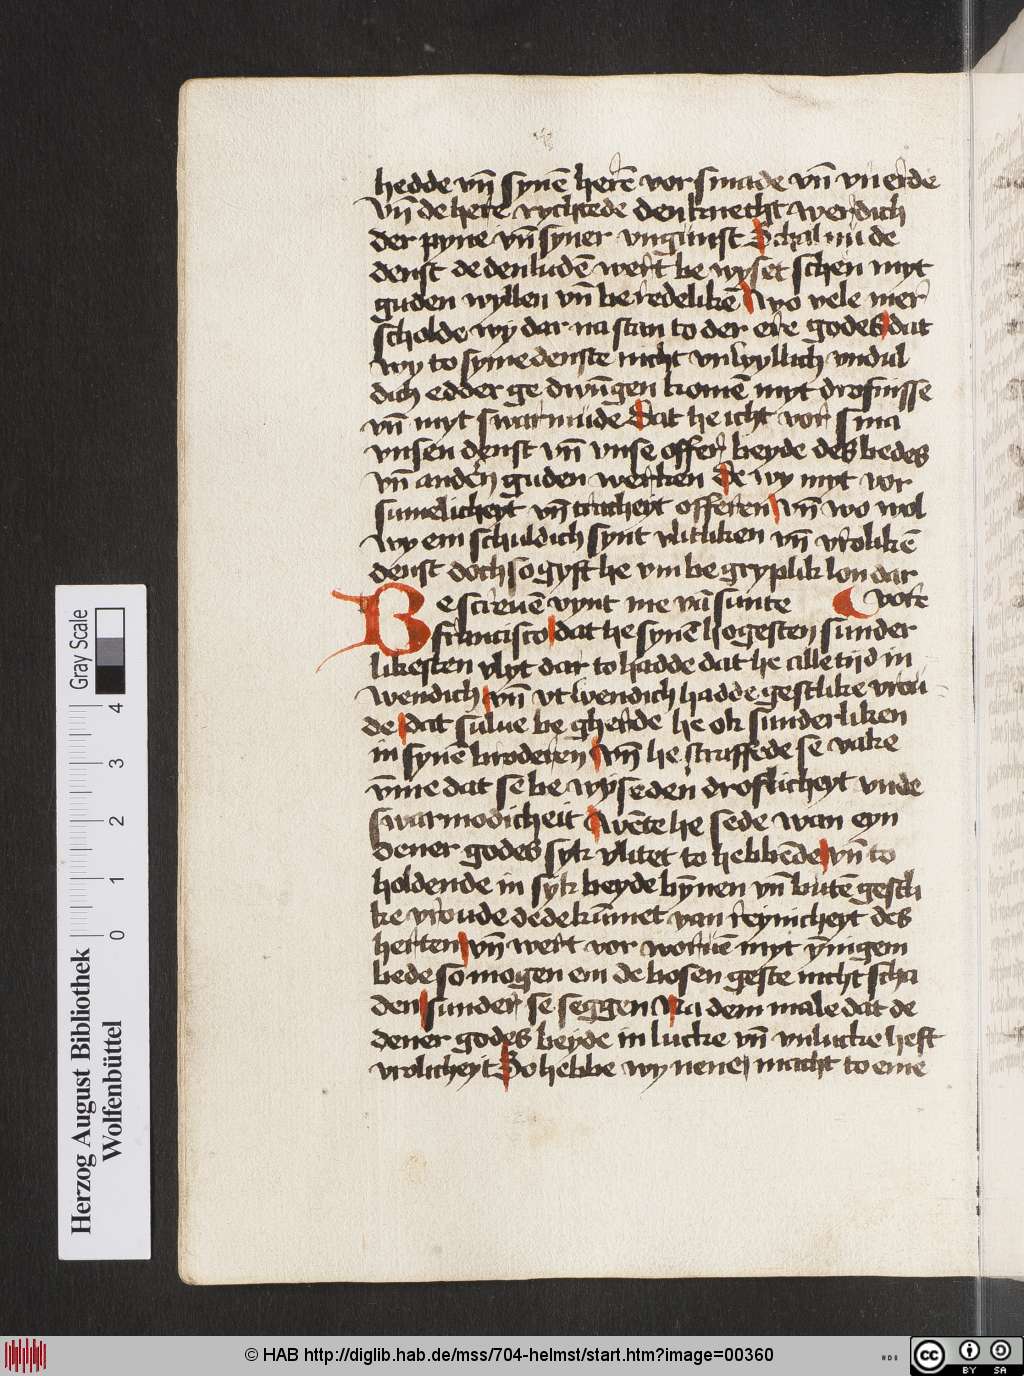 hedde vn̄ synē herē vor smade vn̄ vn erde
vn̄ de here rychtede den knecht werdich
der pyne vn̄ syner vngunst Schal nu de
denst de den ludē wert be wyset schen myt
guden wyllen vn̄ be redelikē wo vele mer
scholde wy dar na stan to der ere godes dat
wy to syme denste nicht vnwyllich vndul
dich edder ge dwūgen komē myt drofnisse
vn̄ myt swarmude Dat he icht vor sma
vnsen denst vn̄ vnse offer beyde des bedes
vn̄ anderē guden werken De wy myt vor
sumelicheyt vn̄ tracheyt offeren vn̄ wo wol
wy em schuldich synt vlitliken vn̄ vrolikē
denst doch so gyft he vm be gryplik lon dar
vore
Be screuē vynt me vā sunte
francisco dat he synē hogesten sunder
likesten vlyt dar to hadde dat he alle tijd in
wendich vn̄ vt wendich hadde gestlike vrou
de dat sulue be gherde he ok sunderliken
in synē broderen vn̄ he straffede se vake
v̄me dat se be wyseden droflicheyt vnde
swarmodicheit wēte he sede wan eyn
dener godes syk vlitet to hebbēde vn̄ to
holdende in syk beyde bȳnen vn̄ butē gestli
ke vroude de de kūmet van reynicheyt des
herten vn̄ wert vor woruē myt ȳnigem
bede so mogen em de bosen geste nicht scha
den sunder se seggen Na dem male dat de
dener godes beyde in lucke vn̄ vnlucke heft
vrolicheyt So hebbe wy nene macht to eme
Herzog August Bibliothek
Wolfenbüttel
Gray Scale
0 1 2 3 4
© HAB http://diglib.hab.de/mss/704-helmst/start.htm?image=00360
HAB
cc BY SA